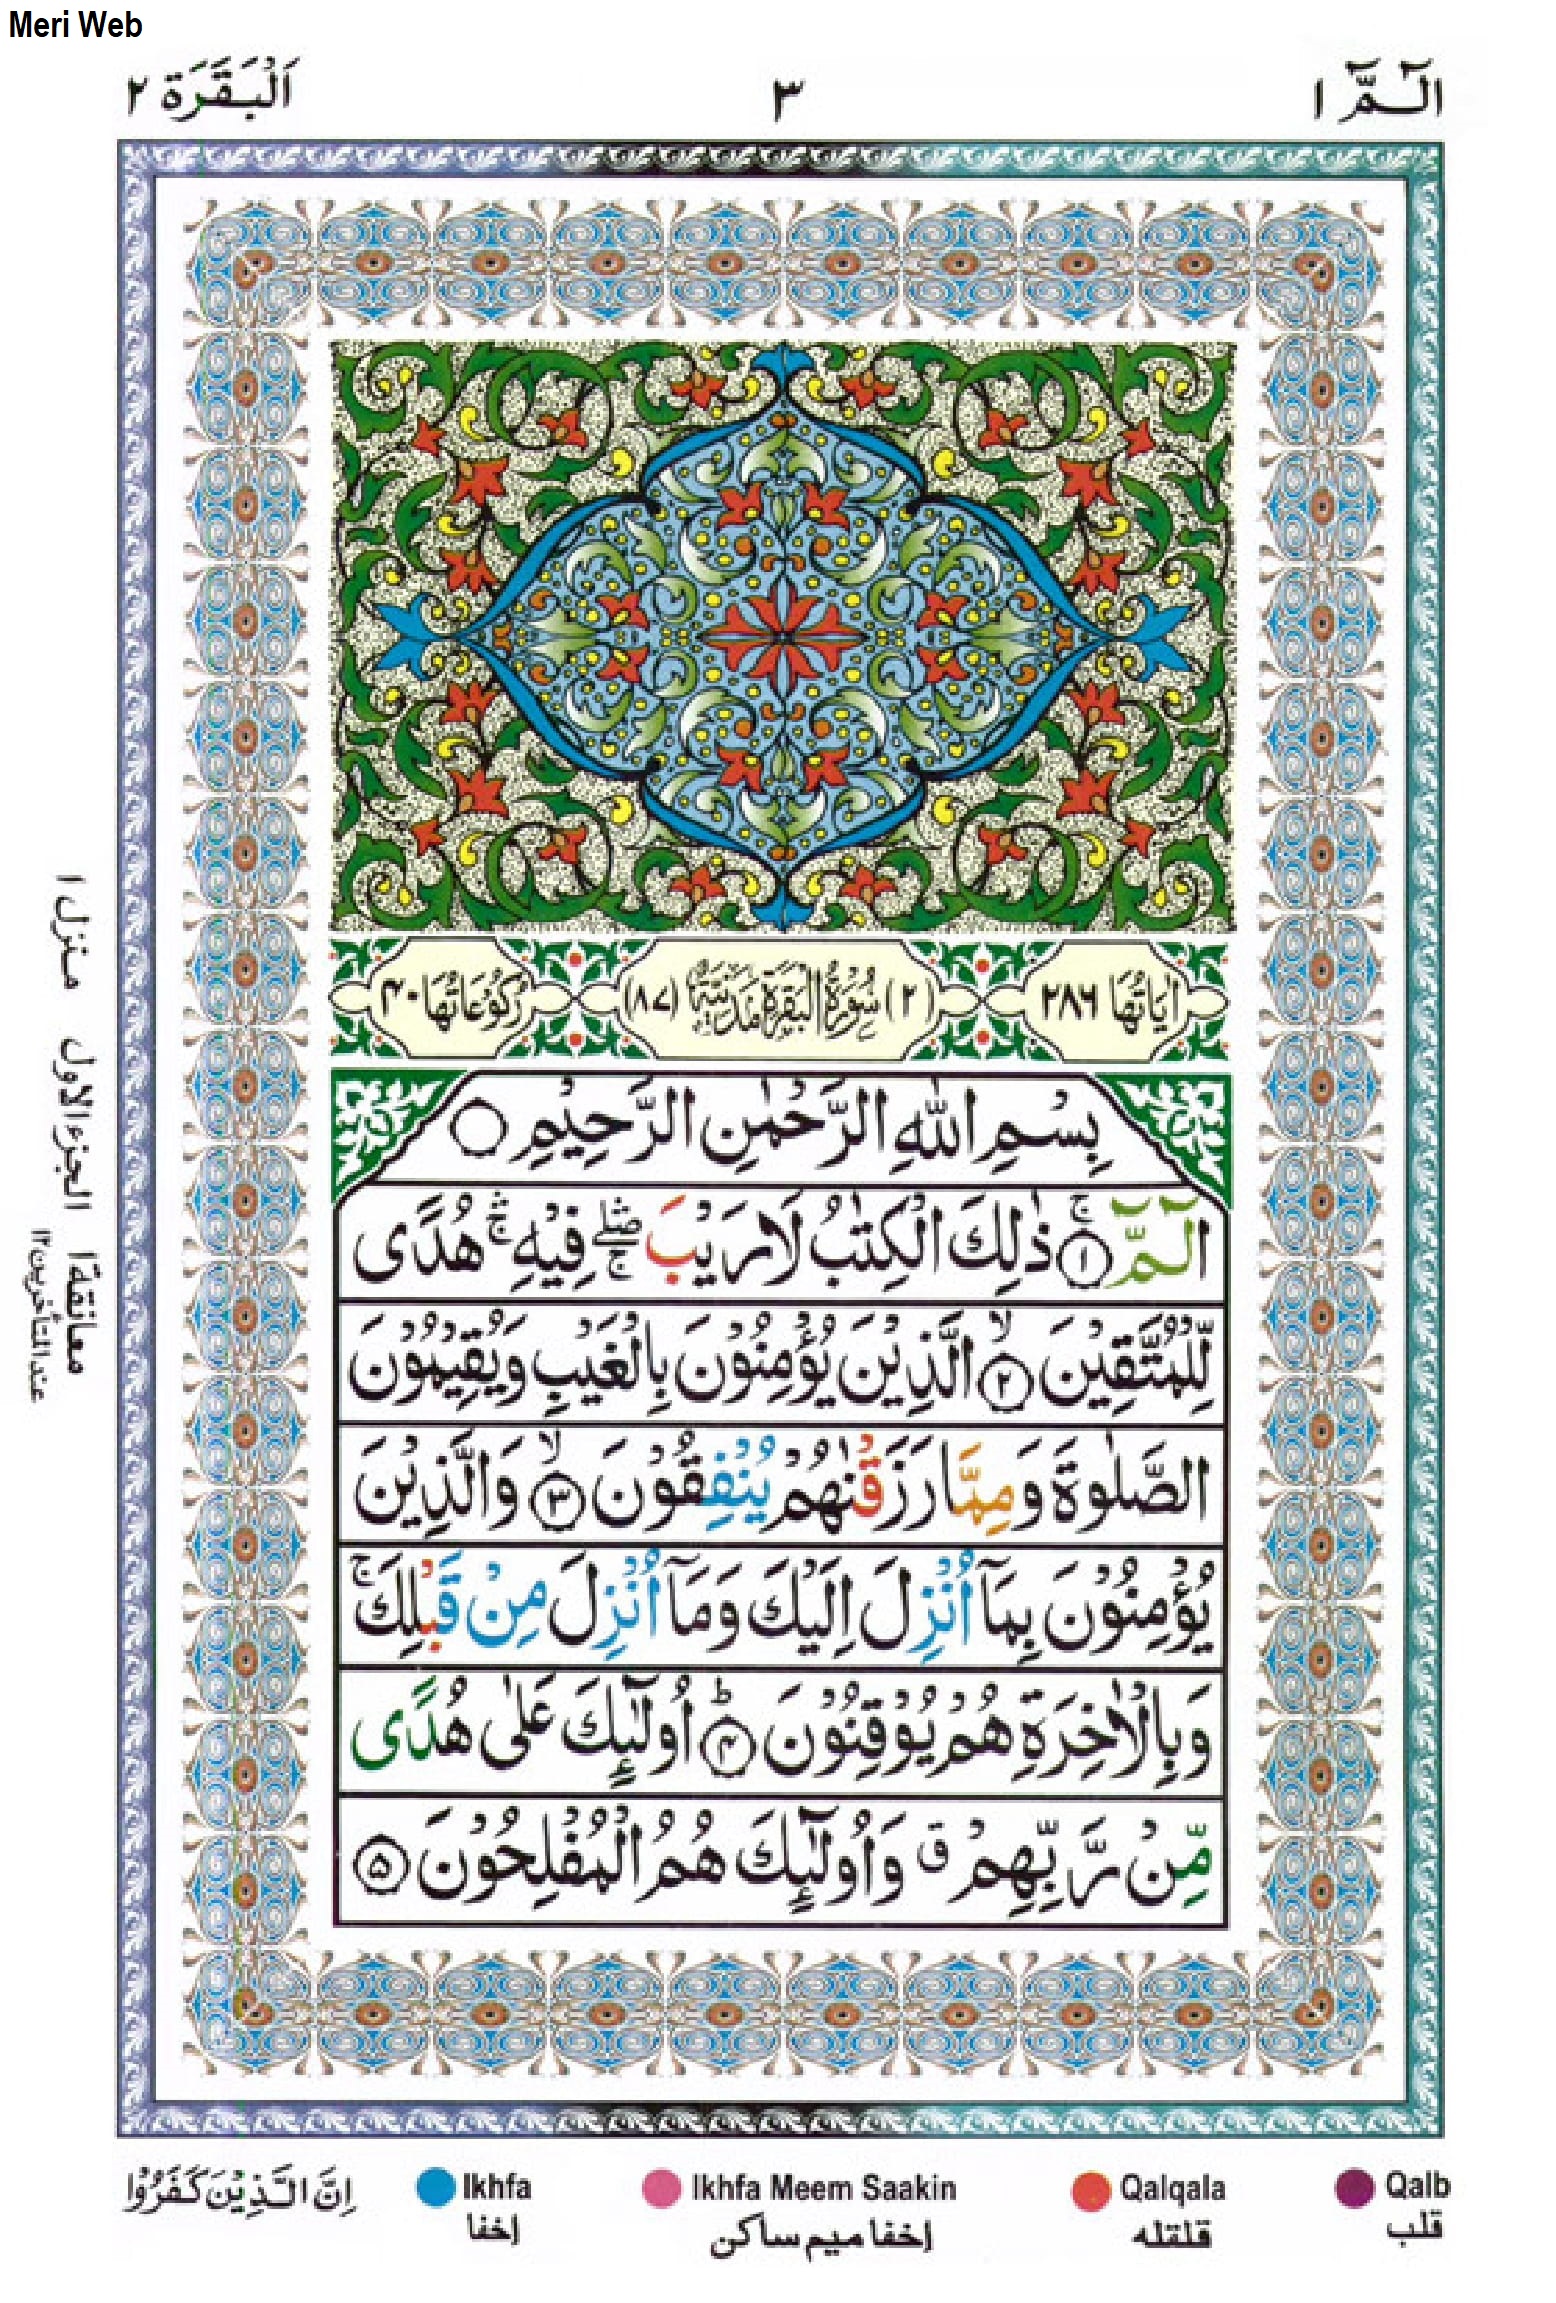 Meri Web
الٓـمّٓ ١
٣
اَلْبَقَرَة ٢
اٰيَاتُهَا ٢٨٦
(٢) سُوْرَةُ الْبَقَرَةِ مَدَنِيَّةٌ (٨٧)
رُكُوْعَاتُهَا ٤٠
بِسْمِ اللّٰهِ الرَّحْمٰنِ الرَّحِيْمِ ○
الٓـمّٓ ۚ ﴿١﴾ ذٰلِكَ الْكِتٰبُ لَا رَيْبَ ۛۖۚ فِيْهِ ۛۚ هُدًى
لِّلْمُتَّقِيْنَ ۙ ﴿٢﴾ الَّذِيْنَ يُؤْمِنُوْنَ بِالْغَيْبِ وَيُقِيْمُوْنَ
الصَّلٰوةَ وَمِمَّا رَزَقْنٰهُمْ يُنْفِقُوْنَ ۙ ﴿٣﴾ وَالَّذِيْنَ
يُؤْمِنُوْنَ بِمَآ اُنْزِلَ اِلَيْكَ وَمَآ اُنْزِلَ مِنْ قَبْلِكَ ۚ
وَبِالْاٰخِرَةِ هُمْ يُوْقِنُوْنَ ؕ ﴿٤﴾ اُولٰٓئِكَ عَلٰى هُدًى
مِّنْ رَّبِّهِمْ ق وَاُولٰٓئِكَ هُمُ الْمُفْلِحُوْنَ ﴿٥﴾
معانقة ١ الجزء الاول منزل ١
عند المتأخرين ١٢
Qalb
قلب
Qalqala
قلقله
Ikhfa Meem Saakin
إخفا ميم ساكن
Ikhfa
إخفا
اِنَّ الَّذِيْنَ كَفَرُوْا